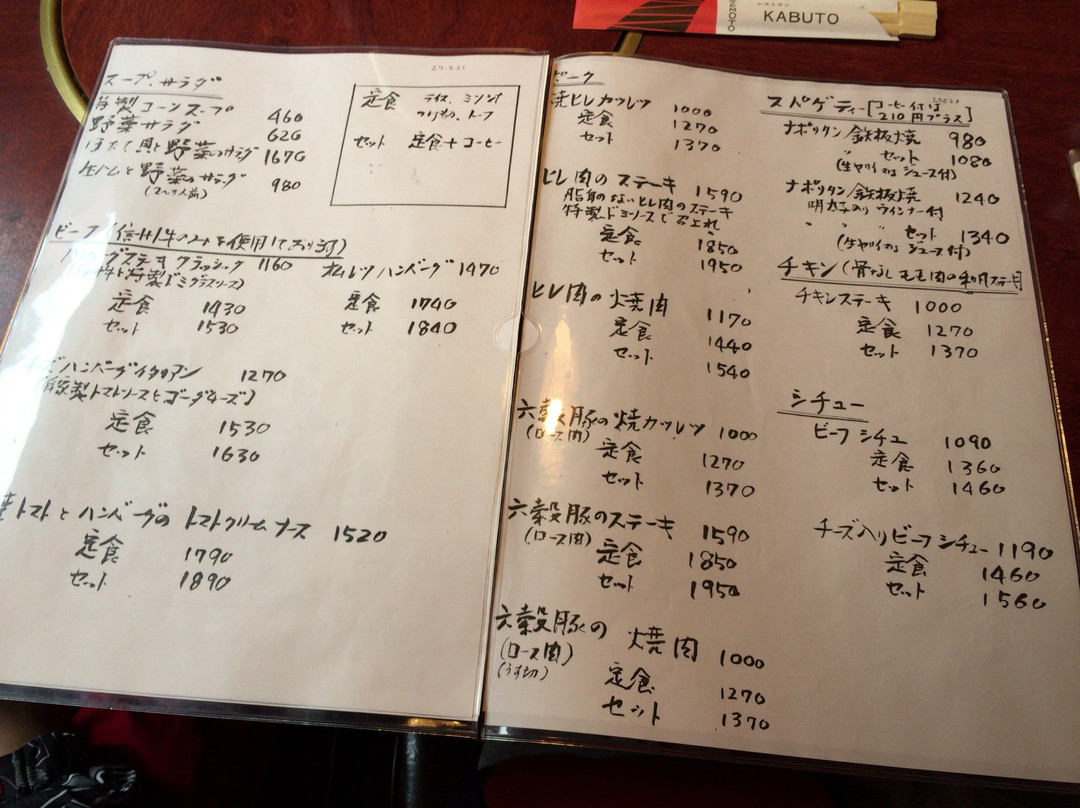 KABUTO
スープ.サラダ
特製コーンスープ 460
野菜サラダ 620
ほたて貝と野菜のサラダ 1670
生ハムと野菜のサラダ 980
定食 ライス、ミソ汁
つけもの、トーフ
セット 定食+コーヒー
ビーフ(信州牛のみを使用しております)
ハンバーグステーキ クラッシック 1160
定食 1430
セット 1530
オムレツハンバーグ 1470
定食 1740
セット 1840
チーズハンバーグイタリアン 1270
(特製トマトソースとゴーダチーズ)
定食 1530
セット 1630
トマトとハンバーグの トマトクリームソース 1520
定食 1790
セット 1890
ポーク
焼ヒレカツレツ 1000
定食 1270
セット 1370
ヒレ肉のステーキ 1590
脂身のないヒレ肉のステーキ
特製ドミソースで召上れ
定食 1850
セット 1950
ヒレ肉の焼肉 1170
定食 1440
セット 1540
六穀豚の焼カツレツ 1000
(ロース肉)
定食 1270
セット 1370
六穀豚のステーキ 1590
(ロース肉)
定食 1850
セット 1950
六穀豚の 焼肉 1000
(ロース肉)
(うす切)
定食 1270
セット 1370
スパゲティー[コーヒー付は
210円プラス]
ナポリタン鉄板焼 980
〃 セット 1080
(生ヤサイ又はジュース付)
ナポリタン鉄板焼 1240
明太子入りウインナー付
〃 〃 セット 1340
(生ヤサイ又はジュース付)
チキン(骨なしモモ肉の和風ステーキ)
チキンステーキ 1000
定食 1270
セット 1370
シチュー
ビーフシチュ 1090
定食 1360
セット 1460
チーズ入りビーフシチュー 1190
定食 1460
セット 1560